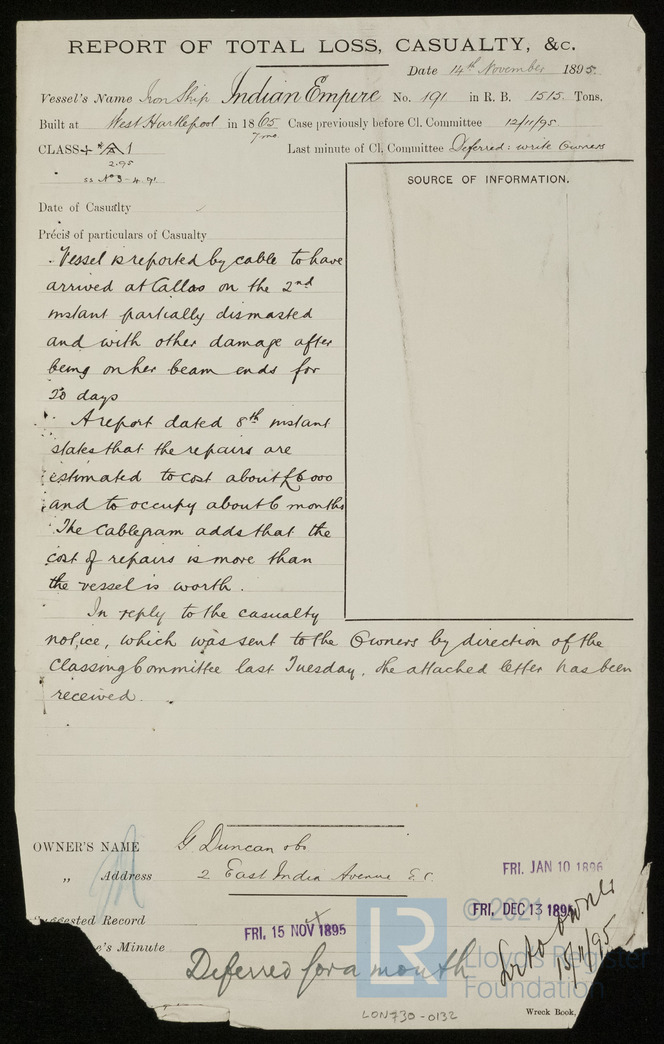 REPORT OF TOTAL LOSS, CASUALTY, &c.
Date 14th November 1895.
Vessel's Name Iron Ship Indian Empire No. 191 in R. B. 1515 Tons.
Built at West Hartlepool in 1865 Case previously before Cl. Committee 12/11/95
7 mo
CLASS + A 1 Last minute of Cl. Committee Deferred: write Owners
2.95
ss No 3 - 4.91
SOURCE OF INFORMATION.
Date of Casualty
Précis of particulars of Casualty
Vessel is reported by cable to have
arrived at Callao on the 2nd
instant partially dismasted
and with other damage after
being on her beam ends for
20 days
A report dated 8th instant
states that the repairs are
estimated to cost about £6000
and to occupy about 6 months
The Cablegram adds that the
cost of repairs is more than
the vessel is worth.
In reply to the casualty
notice, which was sent to the Owners by direction of the
Classing Committee last Tuesday, the attached letter has been
received.
OWNER'S NAME G. Duncan
„ Address 2 East India Avenue E.C.
FRI. JAN 10 1896
© 2021
FRI. DEC 13 1895
Suggested Record
FRI. 15 NOV 1895
e's Minute
Deferred for a month
Owners
15/11/95
LR
Lloyd's Register
Foundation
LON730-0132
Wreck Book,